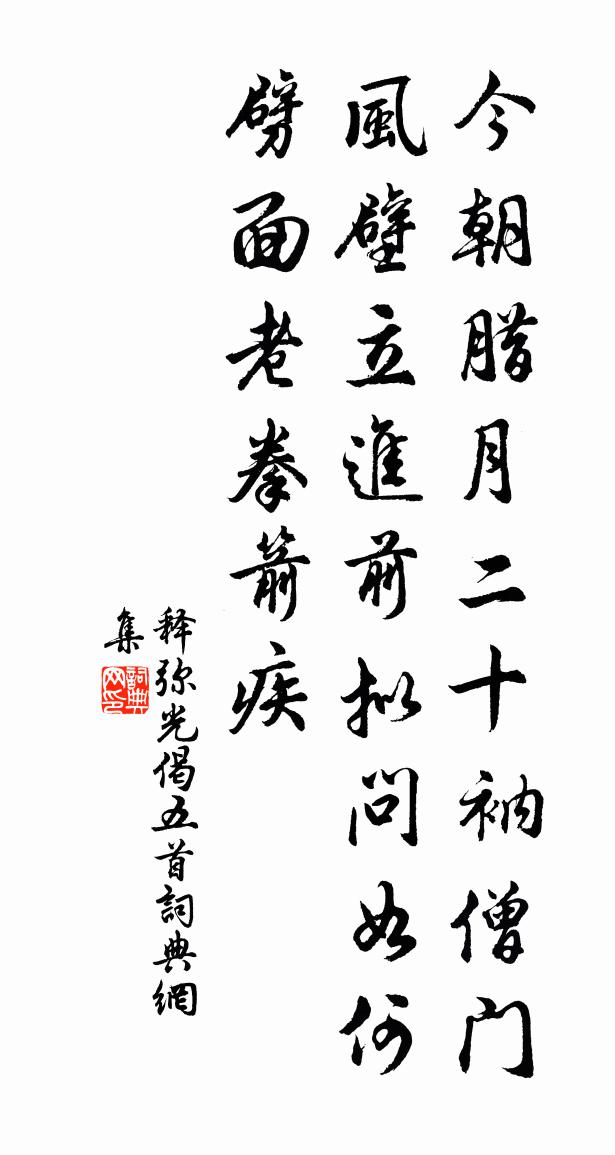 今朝腊月二十衲僧門
風壁立進前拟問如何
劈面老拳箭疾
释弥光偈五首詞典網
集
詞典
网印